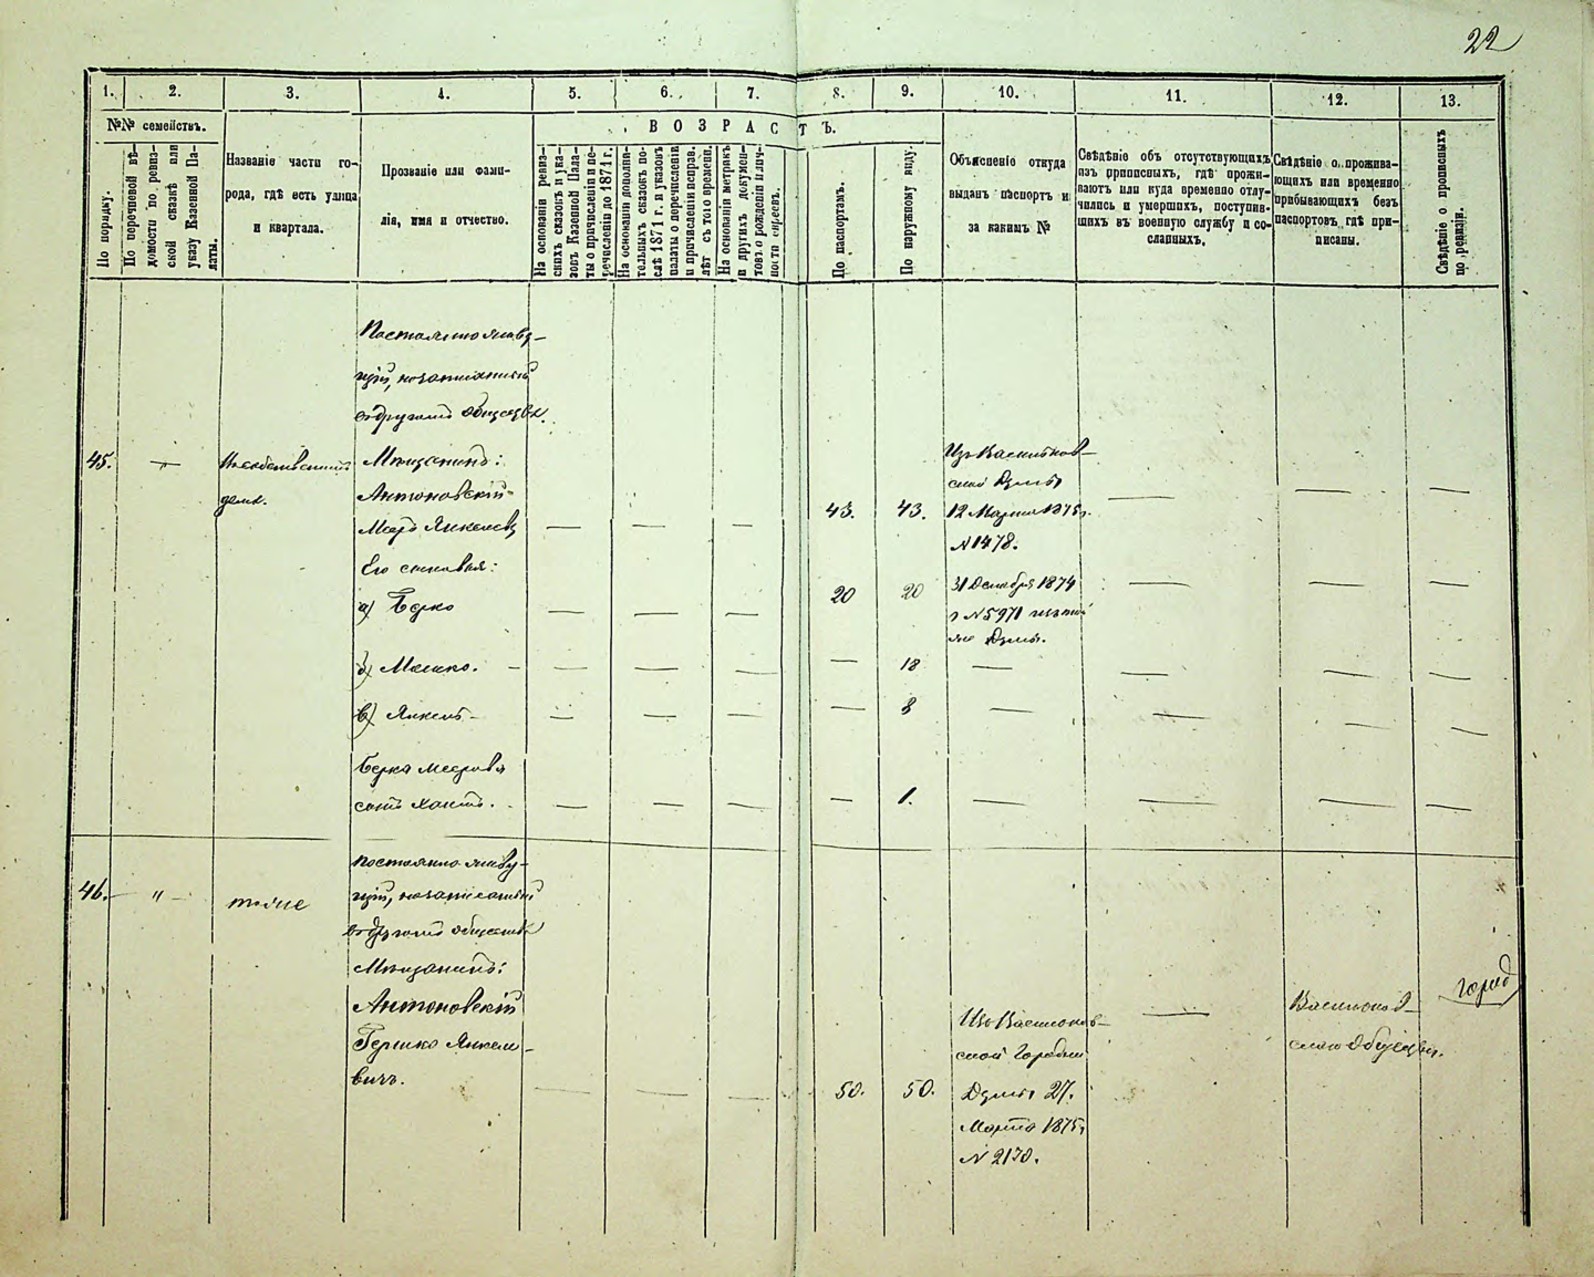 22
1. 2. 3. 4. 5. 6. 7. 8. 9. 10. 11. 12. 13.
№№ семействъ.
По порядку.
По перечневой вѣ-
домости по ревиз-
ской сказкѣ или
указу Казенной Па-
латы.
Названіе части го-
рода, гдѣ есть улица
и квартала.
Прозваніе или фами-
лія, имя и отчество.
ВОЗРАСТЪ.
На основаніи ревиз-
скихъ сказокъ и ука-
зовъ Казенной Пала-
ты о причисленіи и пе-
речисленіи до 1871 г.
На основаніи дополни-
тельныхъ сказокъ по-
слѣ 1871 г. и указовъ
палаты о перечисленіи
и причисленіи исправ.
лѣт съ того времени.
На основаніи метрикъ
и другихъ докумен-
товъ о рожденіи лич-
ности евреевъ.
По паспортамъ.
По наружному виду.
Объясненіе откуда
выданъ паспортъ и
за какимъ №
Свѣдѣніе объ отсутствующихъ
изъ приписныхъ, гдѣ прожи-
ваютъ или куда временно отлу-
чились и умершихъ, поступив-
шихъ въ военную службу и со-
сланныхъ.
Свѣдѣніе о прожива-
ющихъ или временно
прибывающихъ безъ
паспортовъ, гдѣ при-
писаны.
Свѣдѣніе о прописныхъ
по ревизіи.
Постоянно живу-
щій, незаписанный
въ другомъ обществѣ.
45. —
Мѣщанинъ:
Антоновскій
Меръ Янкелевъ
43. 43.
Изъ Васильков-
ской Думы
12 Марта 1875 г.
№ 1478.
Его сыновья:
а) Берко
20 20
31 Декабря 1874
г № 5971 изъ той
же Думы.
б) Мошко. — 18
в) Янкель — 8
Берка Меерова
сынъ 1.
46. " тоже
Постоянно живу-
щій, незаписанный
въ другомъ обществѣ
Мѣщанинъ:
Антоновскій
Гершко Янкеле-
вичъ.
50. 50.
Изъ Васильков-
ской Городской
Думы 27.
Марта 1875 г
№ 2130.
Васильков-
скаго Общества.
город